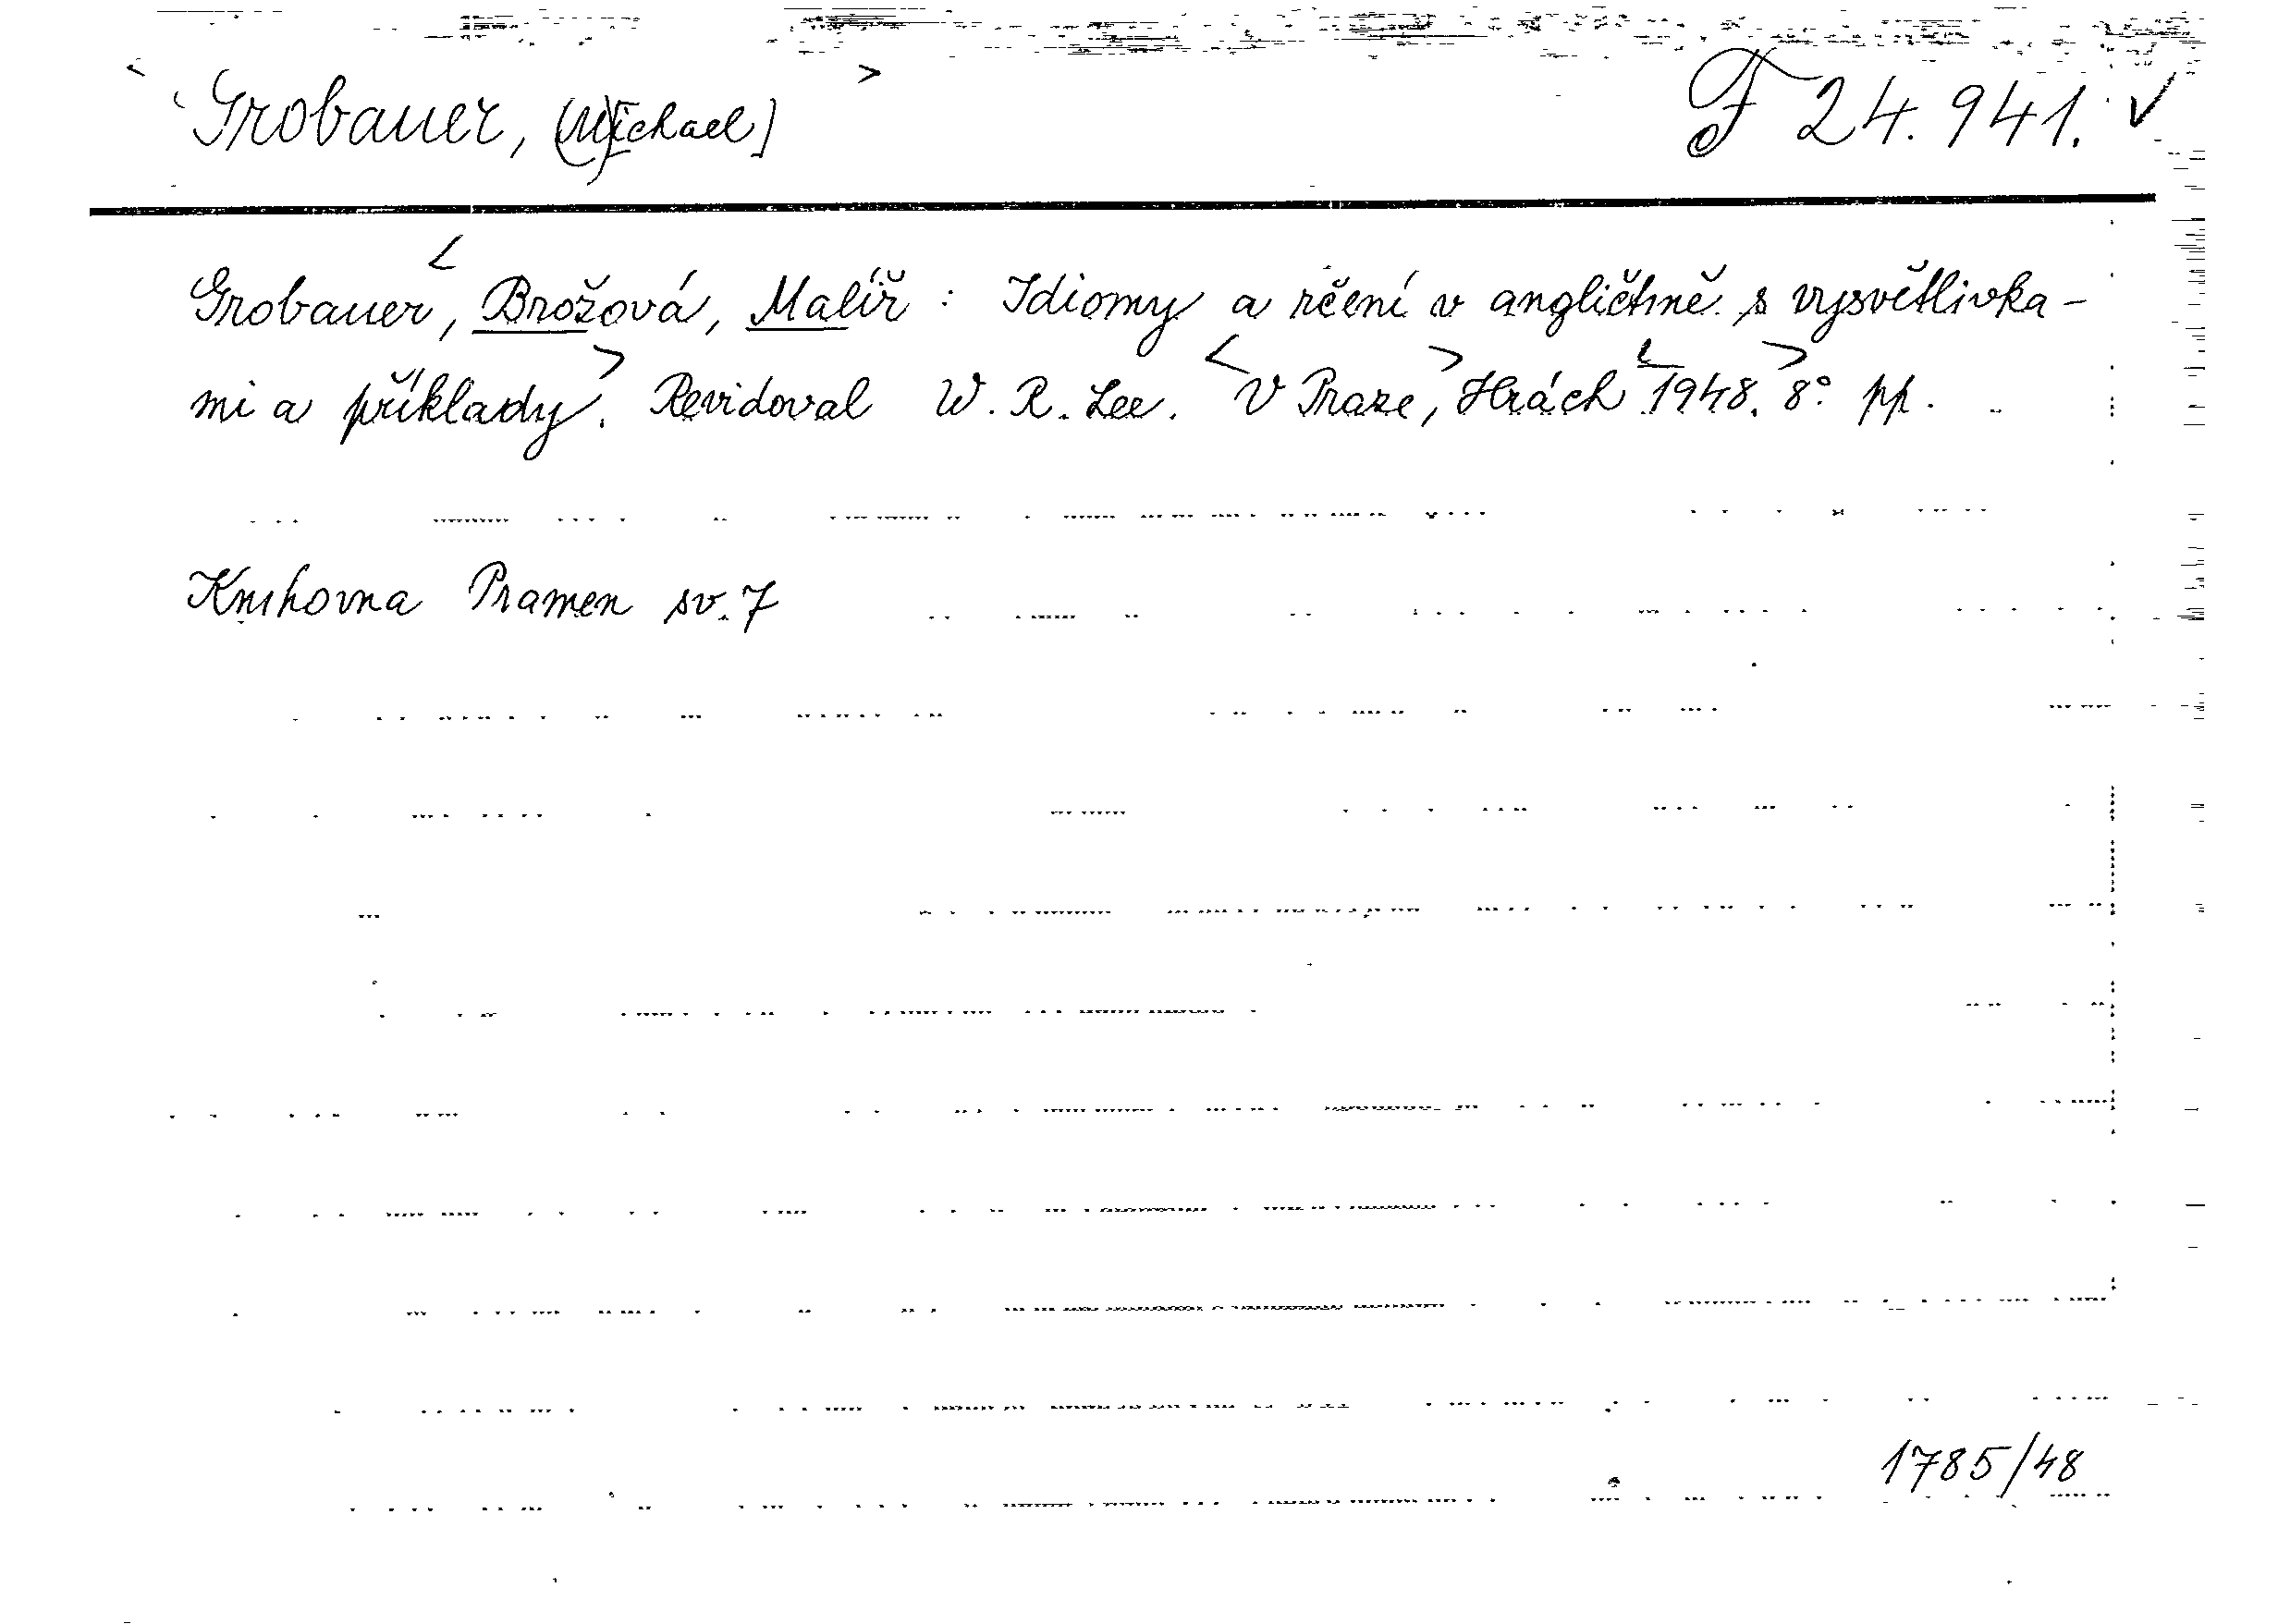 Grobauer, (M)[ichael] F 24.941. ✓
Grobauer, Brožová, Malíř : Idiomy a rčení v angličtině s vysvětlivka-
mi a příklady. Revidoval W. R. Lee. V Praze, Hrách 1948. 8° pp.
Knihovna Pramen sv. 7
1785/48